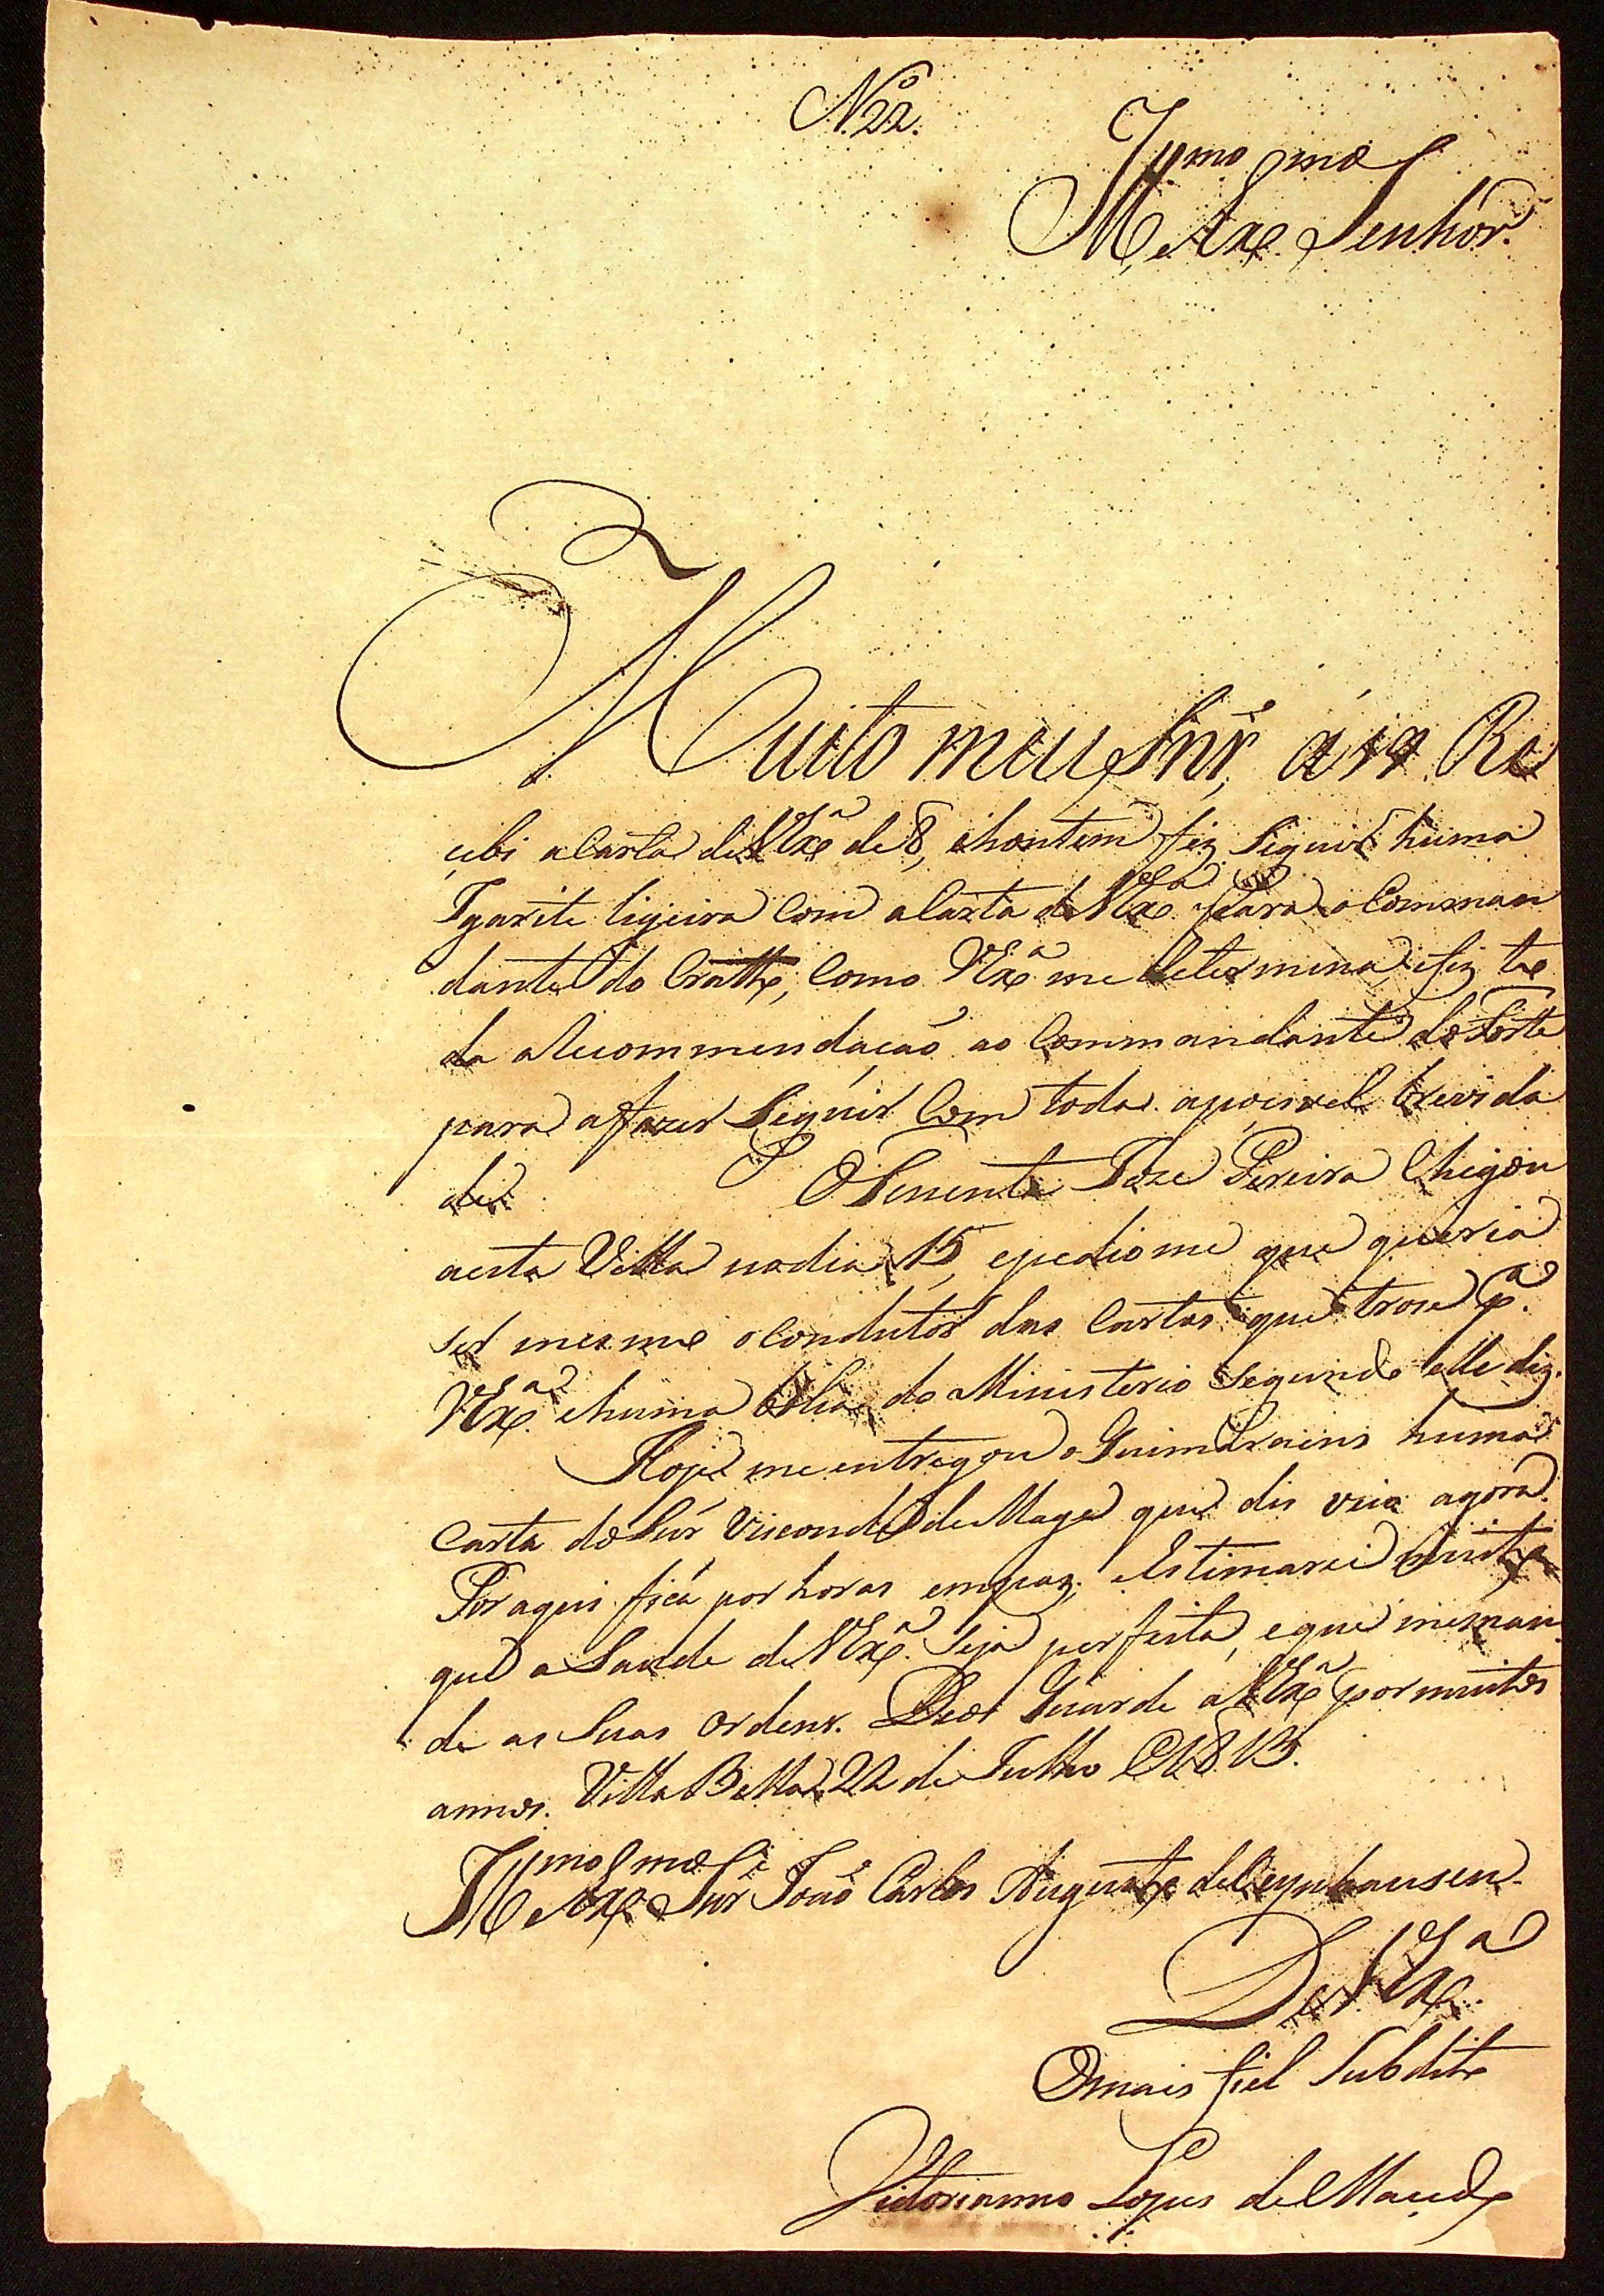 N.º 22.
Ill.mo e Ex.mo Senhor.
Muito meu Snr.', á 19 Re
cebi a Carta de VEx.ª de 8, e hontem fez Seguir huma
Igarite ligeira Com a Carta de VEx.ª para o Comman
dante do Cratto, Como VEx.ª me determina, e fiz to
da a Recommendaçaõ ao Commandante do Forte
para a fazer Seguir Com toda a poçivel brevida
de. O Tenente Joze Pereira Chegou
aesta Villa no dia 15, e pediome que queria
ser mesmo o Condutor das Cartas que trose p.ª
VEx.ª e huma bolsa do Ministerio Segundo elle diz.
Hoje me entregou o Guimaraens huma
Carta do Snr' Visconde de Mage que dis veio agora.
Por aqui fica por horas em paz; Estimarei muito
que a Saude de VEx.ª Seja perfeita, e que me man
de as Suas ordens. Deos Guarde a VEx.ª por muitos
annos. Villa Bella 22 de Julho 1813.
Ill.mo e Ex.mo Snr' Joaõ Carlos Augusto de Oeynhausen
De VEx.ª
O mais fiel Subdito
Victorianno Lopes de Macedo